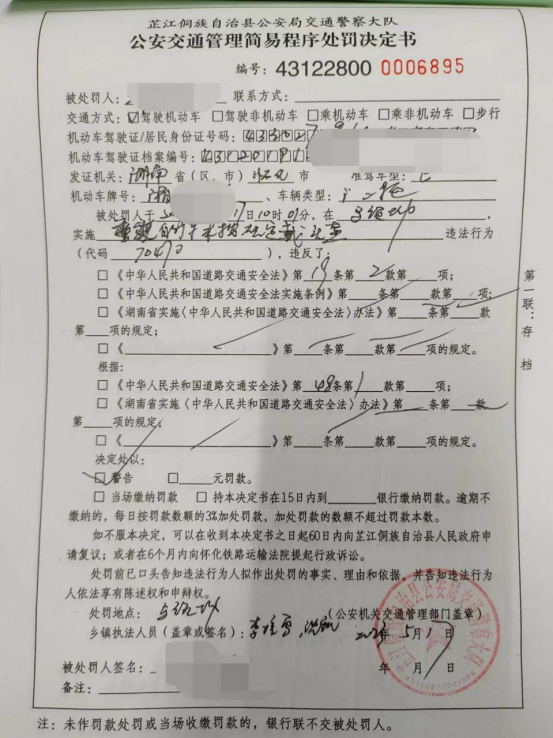 芷江侗族自治县公安局交通警察大队
公安交通管理简易程序处罚决定书
编号：43122800 0006895
被处罚人： 联系方式：
交通方式：☑驾驶机动车 □驾驶非机动车 □乘机动车 □乘非机动车 □步行
机动车驾驶证/居民身份证号码：
机动车驾驶证档案编号：
发证机关：湖南省（区、市）怀化市 准驾车型：C
机动车牌号：湘 、车辆类型：
被处罚人于 17日10时01分，在
实施 违法行为
（代码 ），违反了：
□《中华人民共和国道路交通安全法》第19条第2款第 项；
□《中华人民共和国道路交通安全法实施条例》第 条第 款第 项；
□《湖南省实施〈中华人民共和国道路交通安全法〉办法》第 条第 款
第 项的规定；
□《 》第 条第 款第 项的规定。
根据：
□《中华人民共和国道路交通安全法》第 条第1款第 项；
□《湖南省实施〈中华人民共和国道路交通安全法〉办法》第 条第 款
第 项的规定；
□《 》第 条第 款第 项的规定。
决定处以：
☑警告 □ 元罚款。
□ 当场缴纳罚款 □ 持本决定书在15日内到 银行缴纳罚款。逾期不
缴纳的，每日按罚款数额的3%加处罚款，加处罚款的数额不超过罚款本数。
如不服本决定，可以在收到本决定书之日起60日内向芷江侗族自治县人民政府申
请复议；或者在6个月内向怀化铁路运输法院提起行政诉讼。
处罚前已口头告知违法行为人拟作出处罚的事实、理由和依据，并告知违法行为
人依法享有陈述权和申辩权。
处罚地点：
（公安机关交通管理部门盖章）
乡镇执法人员（盖章或签名）： 5月17日
被处罚人签名： 年 月 日
备注：
第一联：存档
注：未作罚款处罚或当场收缴罚款的，银行联不交被处罚人。